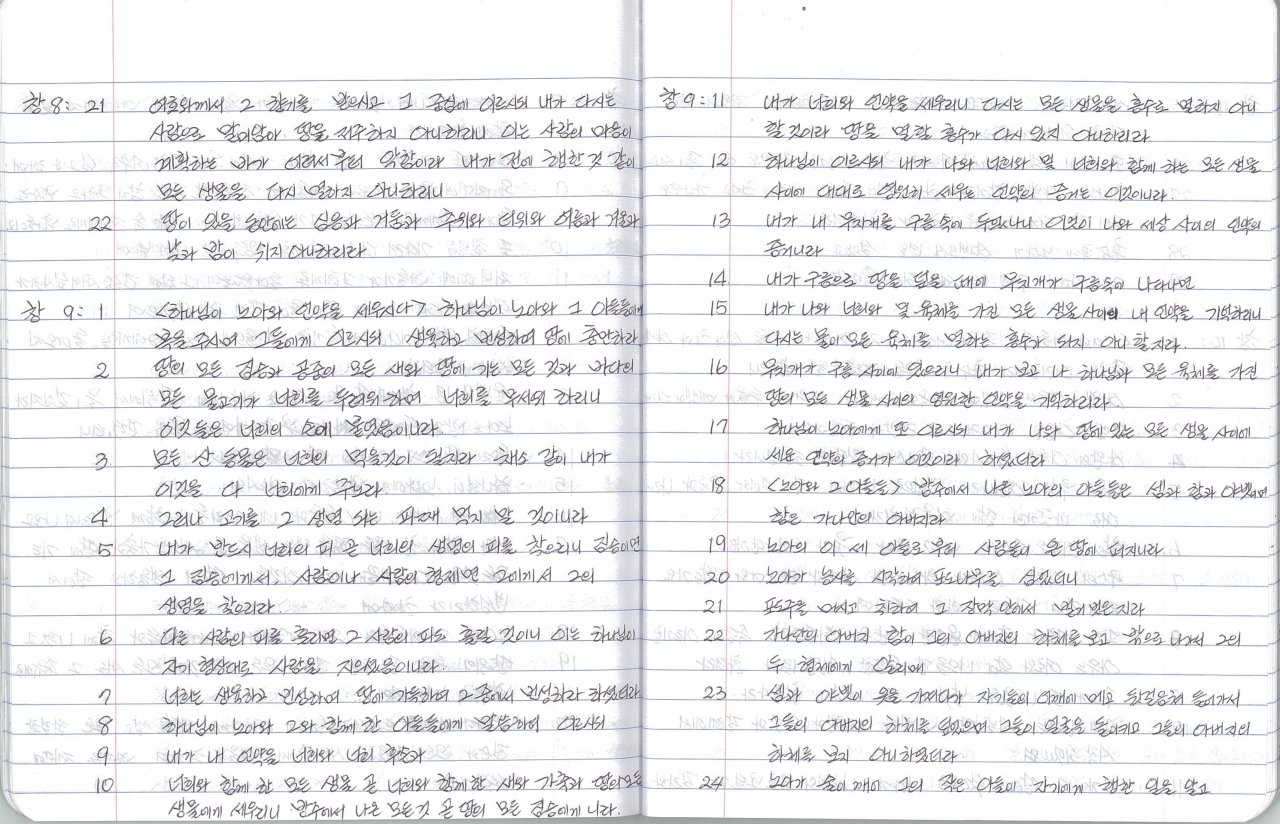 창 8 : 21 여호와께서 그 향기를 받으시고 그 중심에 이르시되 내가 다시는
사람으로 말미암아 땅을 저주하지 아니하리니 이는 사람의 마음이
계획하는 바가 어려서부터 악함이라 내가 전에 행한 것 같이
모든 생물을 다시 멸하지 아니하리니
22 땅이 있을 동안에는 심음과 거둠과 추위와 더위와 여름과 겨울과
낮과 밤이 쉬지 아니하리라
창 9 : 1 <하나님이 노아와 언약을 세우시다> 하나님이 노아와 그 아들들에게
복을 주시며 그들에게 이르시되 생육하고 번성하여 땅에 충만하라
2 땅의 모든 짐승과 공중의 모든 새와 땅에 기는 모든 것과 바다의
모든 물고기가 너희를 두려워하며 너희를 무서워 하리니
이것들은 너희의 손에 붙였음이니라
3 모든 산 동물은 너희의 먹을것이 될지라 채소 같이 내가
이것을 다 너희에게 주노라
4 그러나 고기를 그 생명 되는 피째 먹지 말 것이니라
5 내가 반드시 너희의 피 곧 너희의 생명의 피를 찾으리니 짐승이면
그 짐승에게서, 사람이나 사람의 형제면 그에게서 그의
생명을 찾으리라.
6 다른 사람의 피를 흘리면 그 사람의 피도 흘릴 것이니 이는 하나님이
자기 형상대로 사람을 지으셨음이니라
7 너희는 생육하고 번성하며 땅에 가득하여 그 중에서 번성하라 하셨더라
8 하나님이 노아와 그와 함께 한 아들들에게 말씀하여 이르시되
9 내가 내 언약을 너희와 너희 후손과
10 너희와 함께 한 모든 생물 곧 너희와 함께 한 새와 가축과 땅의 모든
생물에게 세우리니 방주에서 나온 모든것 곧 땅의 모든 짐승에게 니라.
창 9 : 11 내가 너희와 언약을 세우리니 다시는 모든 생물을 홍수로 멸하지 아니
할 것이라 땅을 멸할 홍수가 다시 있지 아니하리라
12 하나님이 이르시되 내가 나와 너희와 및 너희와 함께 하는 모든 생물
사이에 대대로 영원히 세우는 언약의 증거는 이것이니라.
13 내가 내 무지개를 구름 속에 두었나니 이것이 나와 세상 사이의 언약의
증거니라
14 내가 구름으로 땅을 덮을 때에 무지개가 구름속에 나타나면
15 내가 나와 너희와 및 육체를 가진 모든 생물 사이의 내 언약을 기억하리니
다시는 물이 모든 육체를 멸하는 홍수가 되지 아니 할지라.
16 무지개가 구름 사이에 있으리니 내가 보고 나 하나님과 모든 육체를 가진
땅의 모든 생물 사이의 영원한 언약을 기억하리라.
17 하나님이 노아에게 또 이르시되 내가 나와 땅에 있는 모든 생물 사이에
세운 언약의 증거가 이것이라 하셨더라
18 <노아와 그 아들들> 방주에서 나온 노아의 아들들은 셈과 함과 야벳이며
함은 가나안의 아버지라
19 노아의 이 세 아들로부터 사람들이 온 땅에 퍼지니라.
20 노아가 농사를 시작하여 포도나무를 심었더니
21 포도주를 마시고 취하여 그 장막 안에서 벌거벗은지라
22 가나안의 아버지 함이 그의 아버지의 하체를 보고 밖으로 나가서 그의
두 형제에게 알리매
23 셈과 야벳이 옷을 가져다가 자기들의 어깨에 메고 뒷걸음쳐 들어가서
그들의 아버지의 하체를 덮었으며 그들이 얼굴을 돌이키고 그들의 아버지의
하체를 보지 아니하였더라
24 노아가 술이 깨어 그의 작은 아들이 자기에게 행한 일을 알고